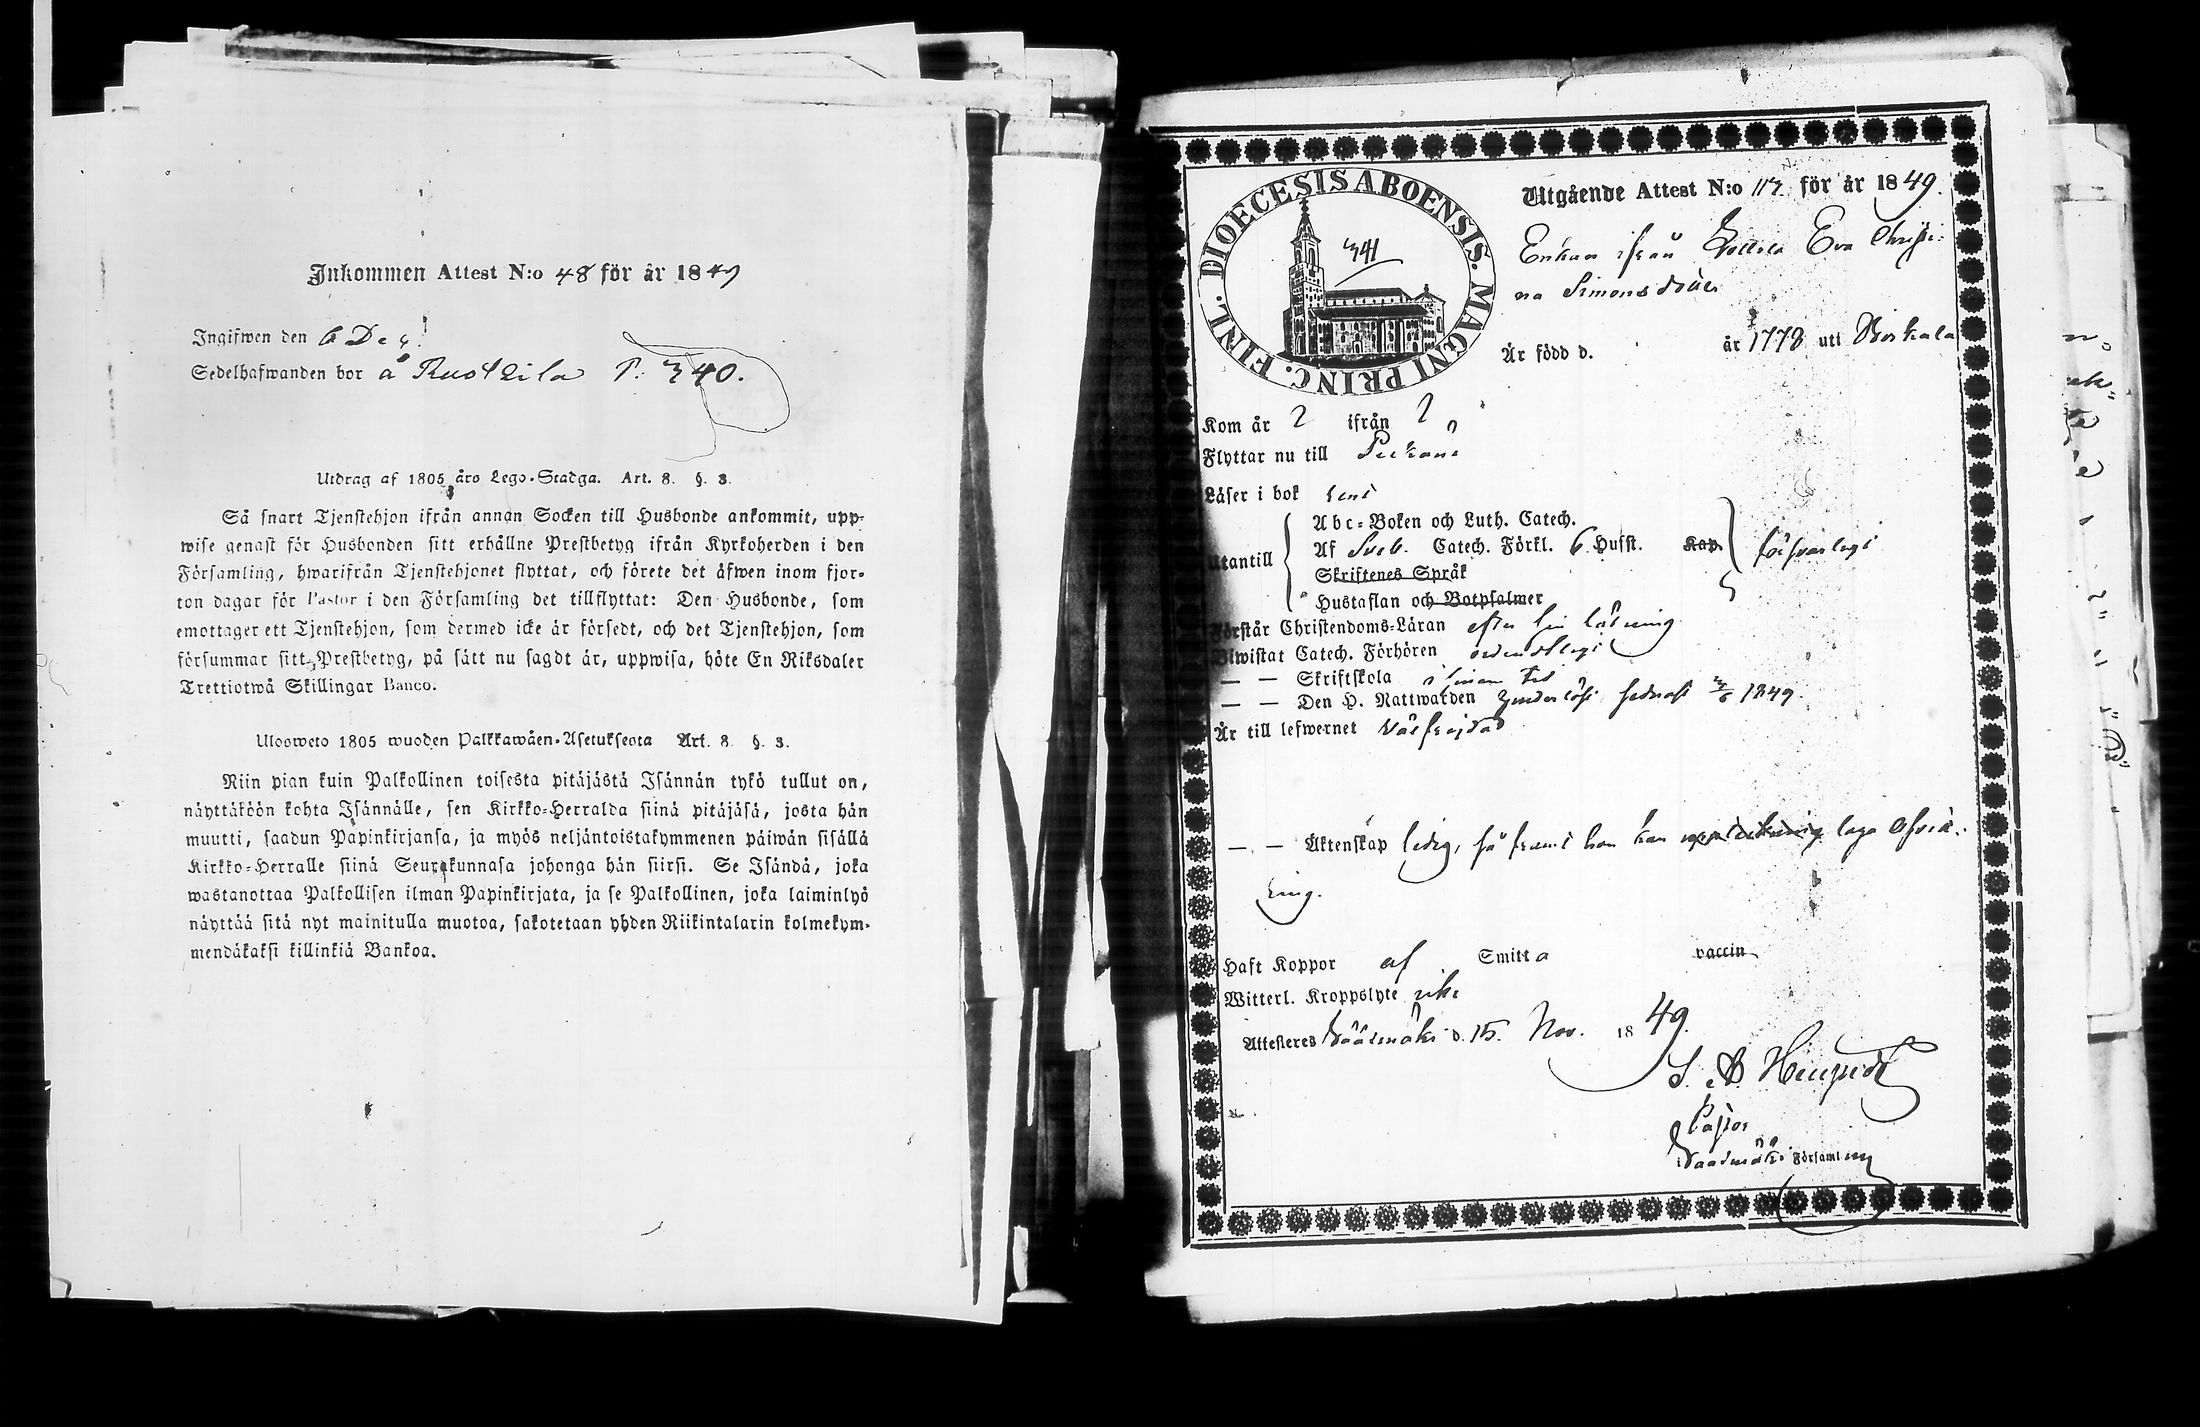 Inkommen Attest N:o 48 för år 1849
Ingifwen den 6 Dec
Sedelhafwanden bor å Rustkila P. 340.
Utdrag af 1805 års Lego-Stadga. Art. 8. §. 3.
Så snart Tjenstehjon ifrån annan Socken till Husbonde ankommit, upp-
wise genast för Husbonden sitt erhållne Prestbetyg ifrån Kyrkoherden i den
Församling, hwarifrån Tjenstehjonet flyttat, och förete det äfwen inom fjor-
ton dagar för Pastor i den Församling det tillflyttat: Den Husbonde, som
emottager ett Tjenstehjon, som dermed icke är försedt, och det Tjenstehjon, som
försummar sitt Prestbetyg, på sätt nu sagdt är, uppwisa, böte En Riksdaler
Trettiotwå Skillingar Banco.
Ulosweto 1805 wuoden Palkkawäen-Asetuksesta Art. 8. §. 3.
Niin pian kuin Palkollinen toisesta pitäjästä Isännän tykö tullut on,
näyttäköön kohta Isännälle, sen Kirkko-Herralda siinä pitäjäsä, josta hän
muutti, saadun Papinkirjansa, ja myös neljäntoistakymmenen päiwän sisällä
Kirkko-Herralle siinä Seurakunnasa johonga hän siirsi. Se Isändä, joka
wastanottaa Palkollisen ilman Papinkirjata, ja se Palkollinen, joka laiminlyö
näyttää sitä nyt mainitulla muotoa, sakotetaan yhden Riikintalarin kolmekym-
mendäkaksi killinkiä Bankoa.
DIOECESIS ABOENSIS. MAGNI PRINC. FINL.
341
Utgående Attest N:o 117 för år 1849.
Enkan ifrån Eva Christi-
na Simonsdotter
Är född d. år 1778 uti
Kom år ? ifrån ?
Flyttar nu till
Läser i bok rent
Utantill
Abc-Boken och Luth. Catech.
Af Sveb. Catech. Förkl. 6 Hufst. Kap. försvarligt
Skriftenes Språk
Hustaflan och Botpsalmer
Förstår Christendoms-Läran efter sin läsning
Biwistat Catech. Förhören ordentligt
— — Skriftskola i sinom tid
— — Den H. Nattwarden sednast 1849.
Är till lefwernet wälfrejdad
— — Äktenskap ledig, så framt hon kan laga afwitt-
ring.
Haft Koppor af Smitta vaccin
Witterl. Kroppslyte icke
Attesteras Sääksmäki d. 15. Nov. 1849.
Pastor
Sääksmäki Församling